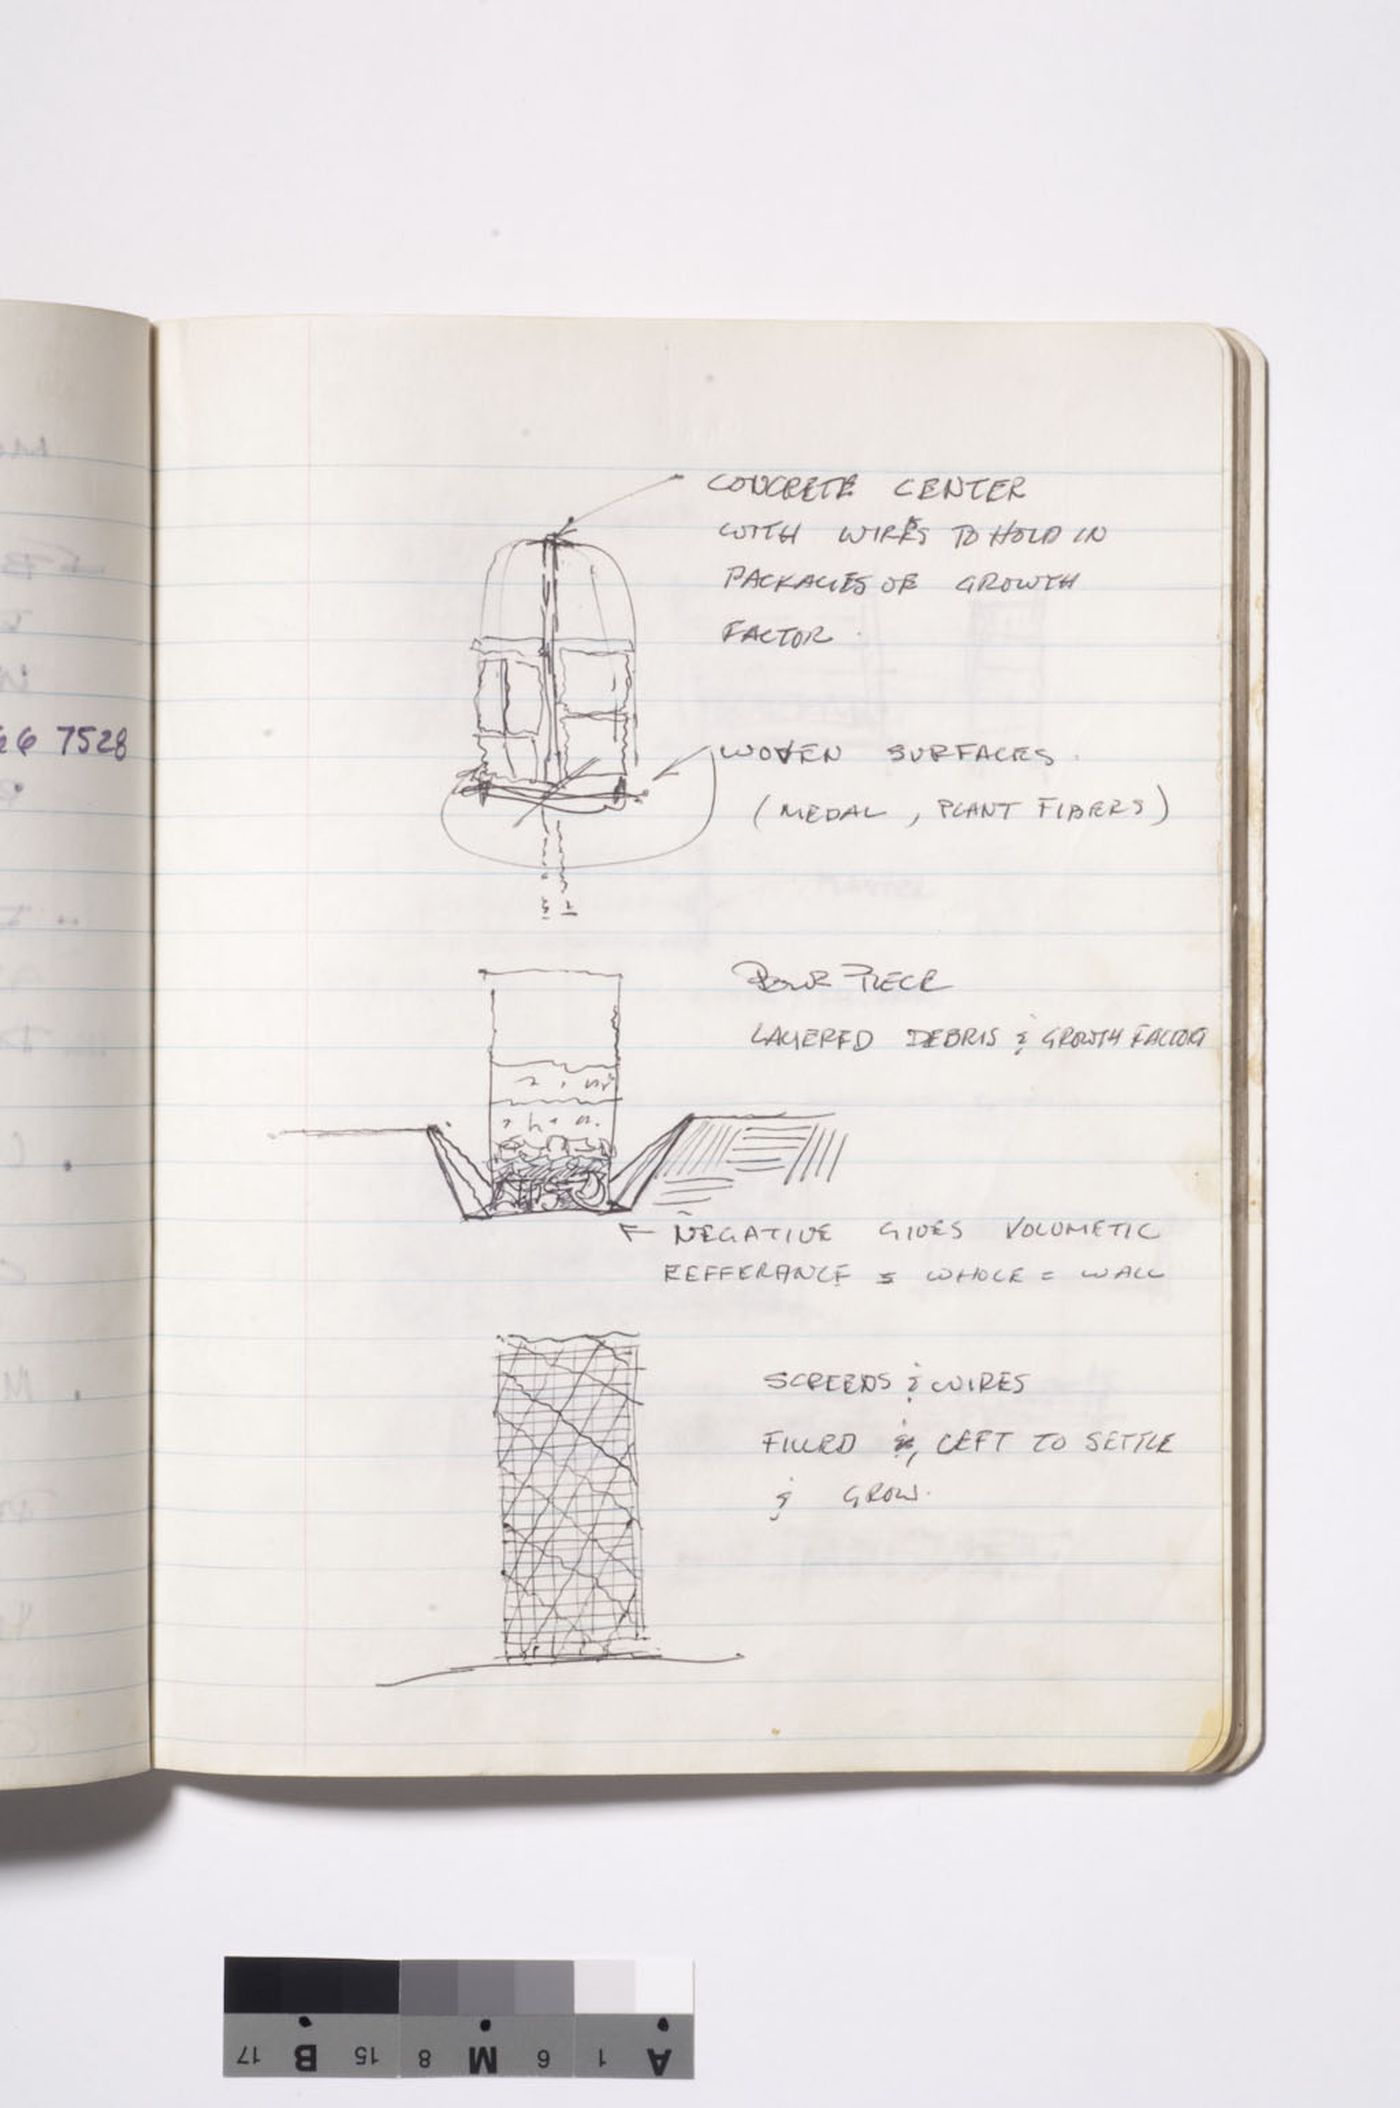 CONCRETE CENTER
WITH WIRES TO HOLD IN
PACKAGES OF GROWTH
FACTOR.
WOVEN SURFACES.
(MEDAL, PLANT FIBERS)
POUR PIECE
LAYERED DEBRIS & GROWTH FACTOR
NEGATIVE GIVES VOLUMETIC
REFFERANCE = WHOLE = WALL
SCREENS & WIRES
FILLED &, LEFT TO SETTLE
& GROW.
6 7528
17 B 15 8 M 6 1 A